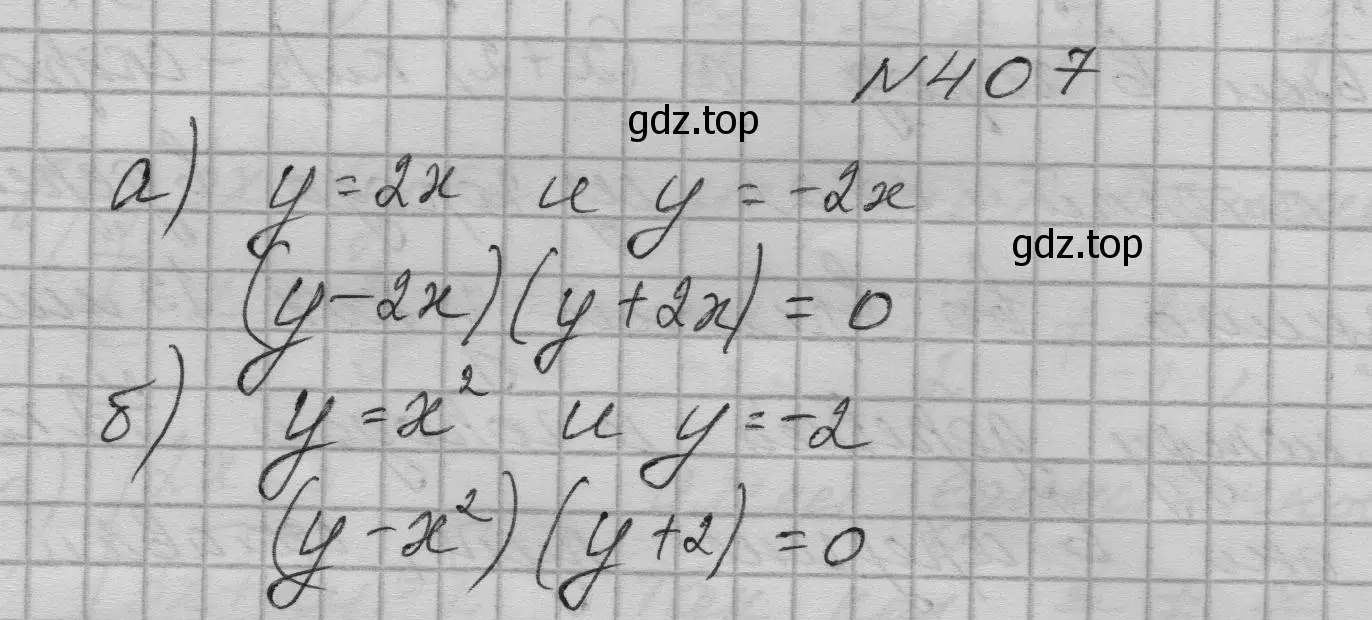 N 407
gdz.top
а) y = 2x и y = -2x
gdz.top
(y - 2x)(y + 2x) = 0
б) y = x² и y = -2
(y - x²)(y + 2) = 0